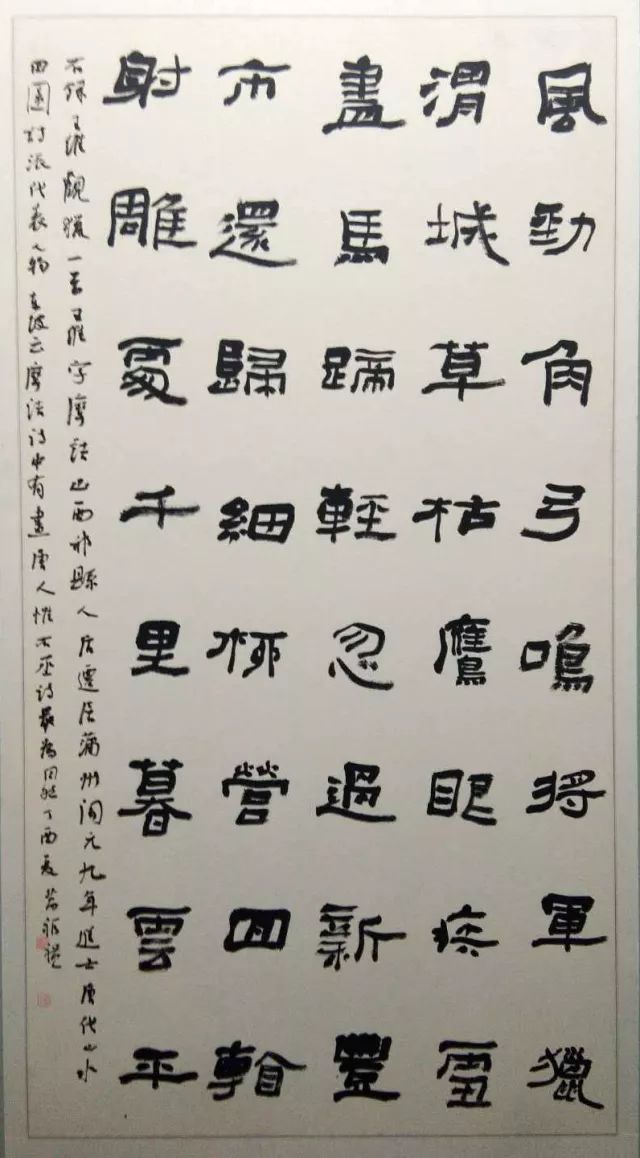 風勁角弓鳴將軍獵
渭城草枯鷹眼疾雪
盡馬蹄輕忽過新豐
市還歸細柳營回看
射雕處千里暮雲平
右錄王維觀獵一首王維字摩詰山西祁縣人后遷居蒲州開元九年進士唐代山水
田園詩派代表人物東坡云摩詰詩中有畫唐人惟右丞詩最為丁酉夏